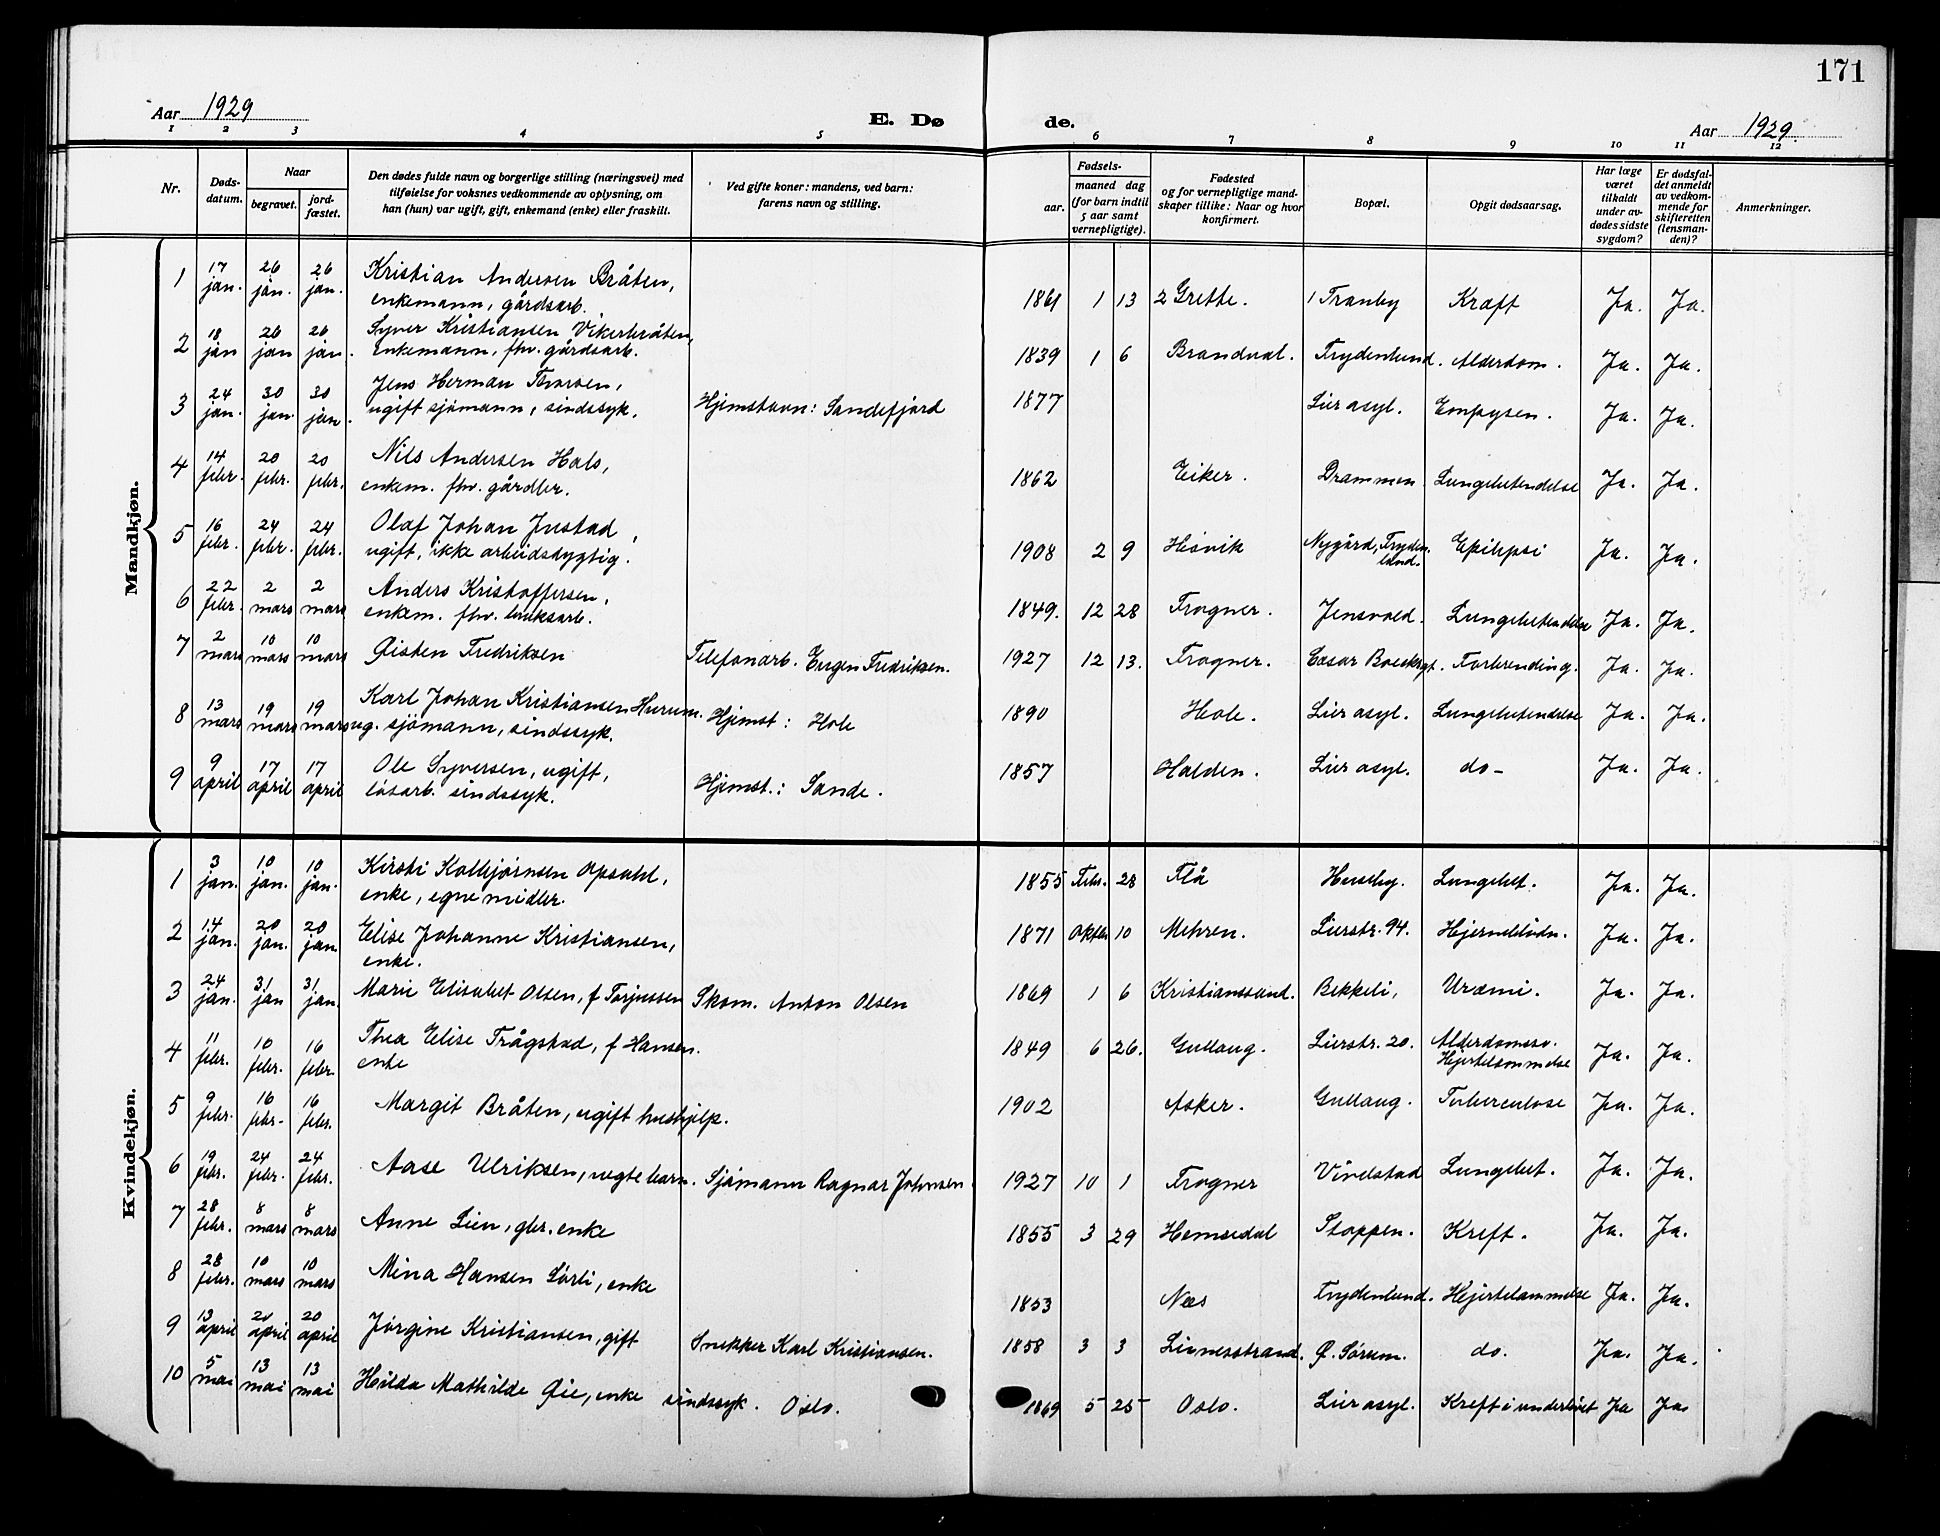 171
Aar 1929 E. Dø de. Aar 1929.
1 2 3 4 5 6 7 8 9 10 11 12
Nr. Døds-datum. Naar begravet. jord-fæstet. Den dødes fulde navn og borgerlige stilling (næringsvei) med tilføielse for voksnes vedkommende av oplysning, om han (hun) var ugift, gift, enkemand (enke) eller fraskilt. Ved gifte koner: mandens, ved barn: farens navn og stilling. Fødsels- aar. maaned dag (for barn indtil 5 aar samt vernepligtige). Fødested og for vernepligtige mand-skaper tillike: Naar og hvor konfirmert. Bopæl. Opgit dødsaarsag. Har læge været tilkaldt under av-dødes sidste sygdom? Er dødsfal-det anmeldt av vedkom-mende for skifteretten (lensman-den)? Anmerkninger.
Mandkjøn.
1 17 jan. 26 jan. 26 jan. Kristian Andersen Bråten, enkemann, gårdsarb. 1861 1 13 Grette. Tranby Kræft Ja. Ja.
2 18 jan 26 jan 26 jan. Syver Kristiansen Vikerbråten, enkemann, fhv. gårdsarb. 1839 1 6 Brandval. Frydenlund. Alderdom. Ja. Ja.
3 24 jan. 30 jan. 30 jan. Jens Herman Thorsen, ugift sjømann, sindssyk. Hjemstavn: Sandefjord 1877 Lier asyl. Empysen. Ja. Ja.
4 14 febr. 20 febr. 20 febr. Nils Andersen Hals, enkem. fhv. gårdbr. 1862 Eiker. Drammen Lungebetendelse Ja. Ja.
5 16 febr. 24 febr. 24 febr. Olaf Johan Justad, ugift, ikke arbeidsdygtig. 1908 2 9 Høvik Nygård, Frydenlund. Epilepsi Ja. Ja.
6 22 febr. 2 mars 2 mars Anders Kristoffersen, enkem. fhv. bruksarb. 1849. 12 28 Frogner. Jensvold. Lungebetendelse Ja. Ja.
7 2 mars 10 mars 10 mars Øisten Fredriksen Telefonarb. Eugen Fredriksen. 1927 12 13. Frogner. Cæsar Boeskgt. Forbrending. Ja. Ja.
8 13 mars 19 mars 19 mars Karl Johan Kristiansen Hurum. ug. sjømann, sindssyk. Hjemst: Hole 1890 Hole. Lier asyl. Lungebetendelse Ja. Ja.
9 9 april 17 april 17 april Ole Syversen, ugift, løsarb. sindssyk. Hjemst.: Sande. 1857 Halden. Lier asyl. do- Ja. Ja.
Kvindekjøn.
1 3 jan. 10 jan. 10 jan. Kirsti Kolbjørnsen Opsahl, enke, egne midler. 1855 Febr. 28 Flå Huseby. Lungebet. Ja. Ja.
2 14 jan. 20 jan. 20 jan. Elise Johanne Kristiansen, enke. 1871 Oktbr 10 Mehren. Lierstr. 94. Hjerneblødn. Ja. Ja.
3 24 jan. 31 jan 31 jan. Marie Elisabet Olsen, f Torjussen Skom. Anton Olsen 1869 1 6 Kristianssand. Bekkeli, Uræmi. Ja. Ja.
4 11 febr. 10 febr. 16 febr. Thea Elise Trågstad, f Hansen. enke 1849 6 26. Gullaug. Lierstr. 20. Alderdomssv. Hjertelammelse Ja. Ja.
5 9 febr. 16 febr- 16 febr. Margit Bråten, ugift hushjelp. 1902 Asker. Gullaug. Tuberculose Ja. Ja.
6 19 febr. 24 febr. 24 febr. Aase Ulriksen, uegte barn. Sjømann Ragnar Johnsen 1927 10 1 Frogner Vivelstad Lungebet. Ja. Ja.
7 28 febr. 8 mars 8 mars Anne Lien, gbr. enke 1855 3 29 Hemsedal Stoppen. Kreft. Ja. Ja.
8 28 febr. 10 mars 10 mars Mina Hansen Sørli, enke 1853 Næs Frydenlund. Hjertelammelse Ja. Ja.
9 13 april 20 april 20 april Jørgine Kristiansen, gift Snekker Karl Kristiansen. 1858 3 3 Linnesstrand. Ø. Sørum. do. Ja. Ja.
10 5 mai 13 mai 13 mai Hilda Mathilde Øie, enke sindssyk. Oslo. 1869 5 25 Oslo. Lier asyl. Kreft i underlivet Ja Ja.